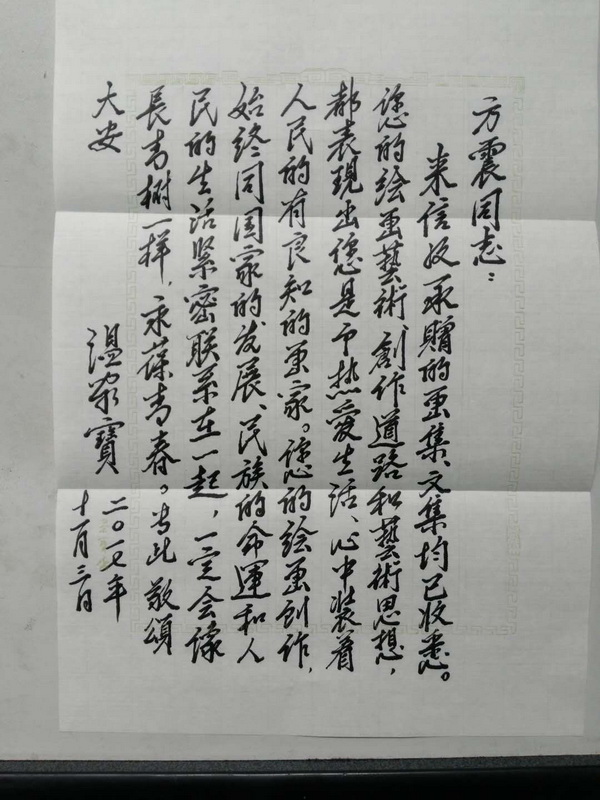 方震同志：
来信及承赠的画集、文集均已收悉。
您的绘画藝術創作道路和藝術思想，
都表現出您是一个热爱生活、心中装着
人民的有良知的画家。您的绘画創作，
始终同国家的发展、民族的命運和人
民的生活紧密联系在一起，一定会像
長青树一样，永葆青春。专此敬頌
大安
温家寶
二〇一七年
十一月三日